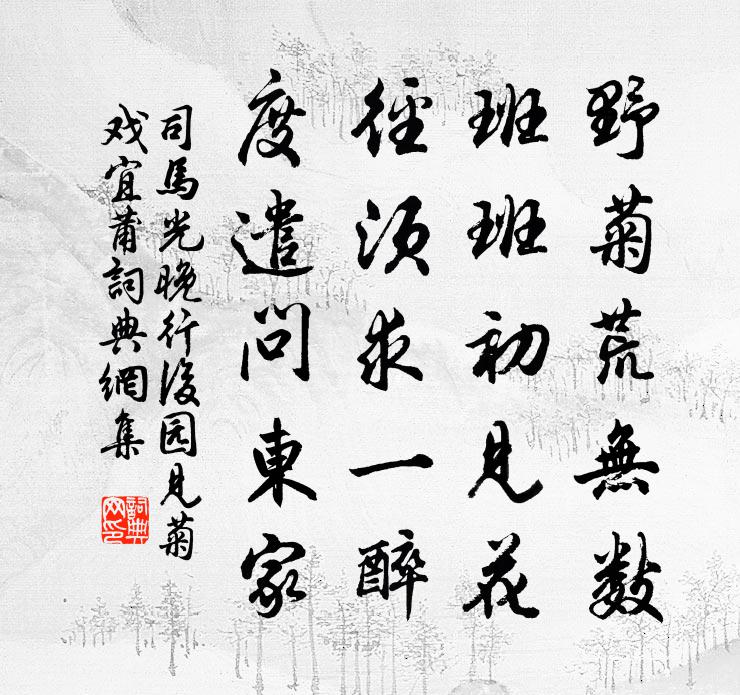 野菊荒無數
班班初見花
徑須求一醉
度遣問東家
司馬光晚行後园見菊
戏宜甫詞典網集
詞典網印